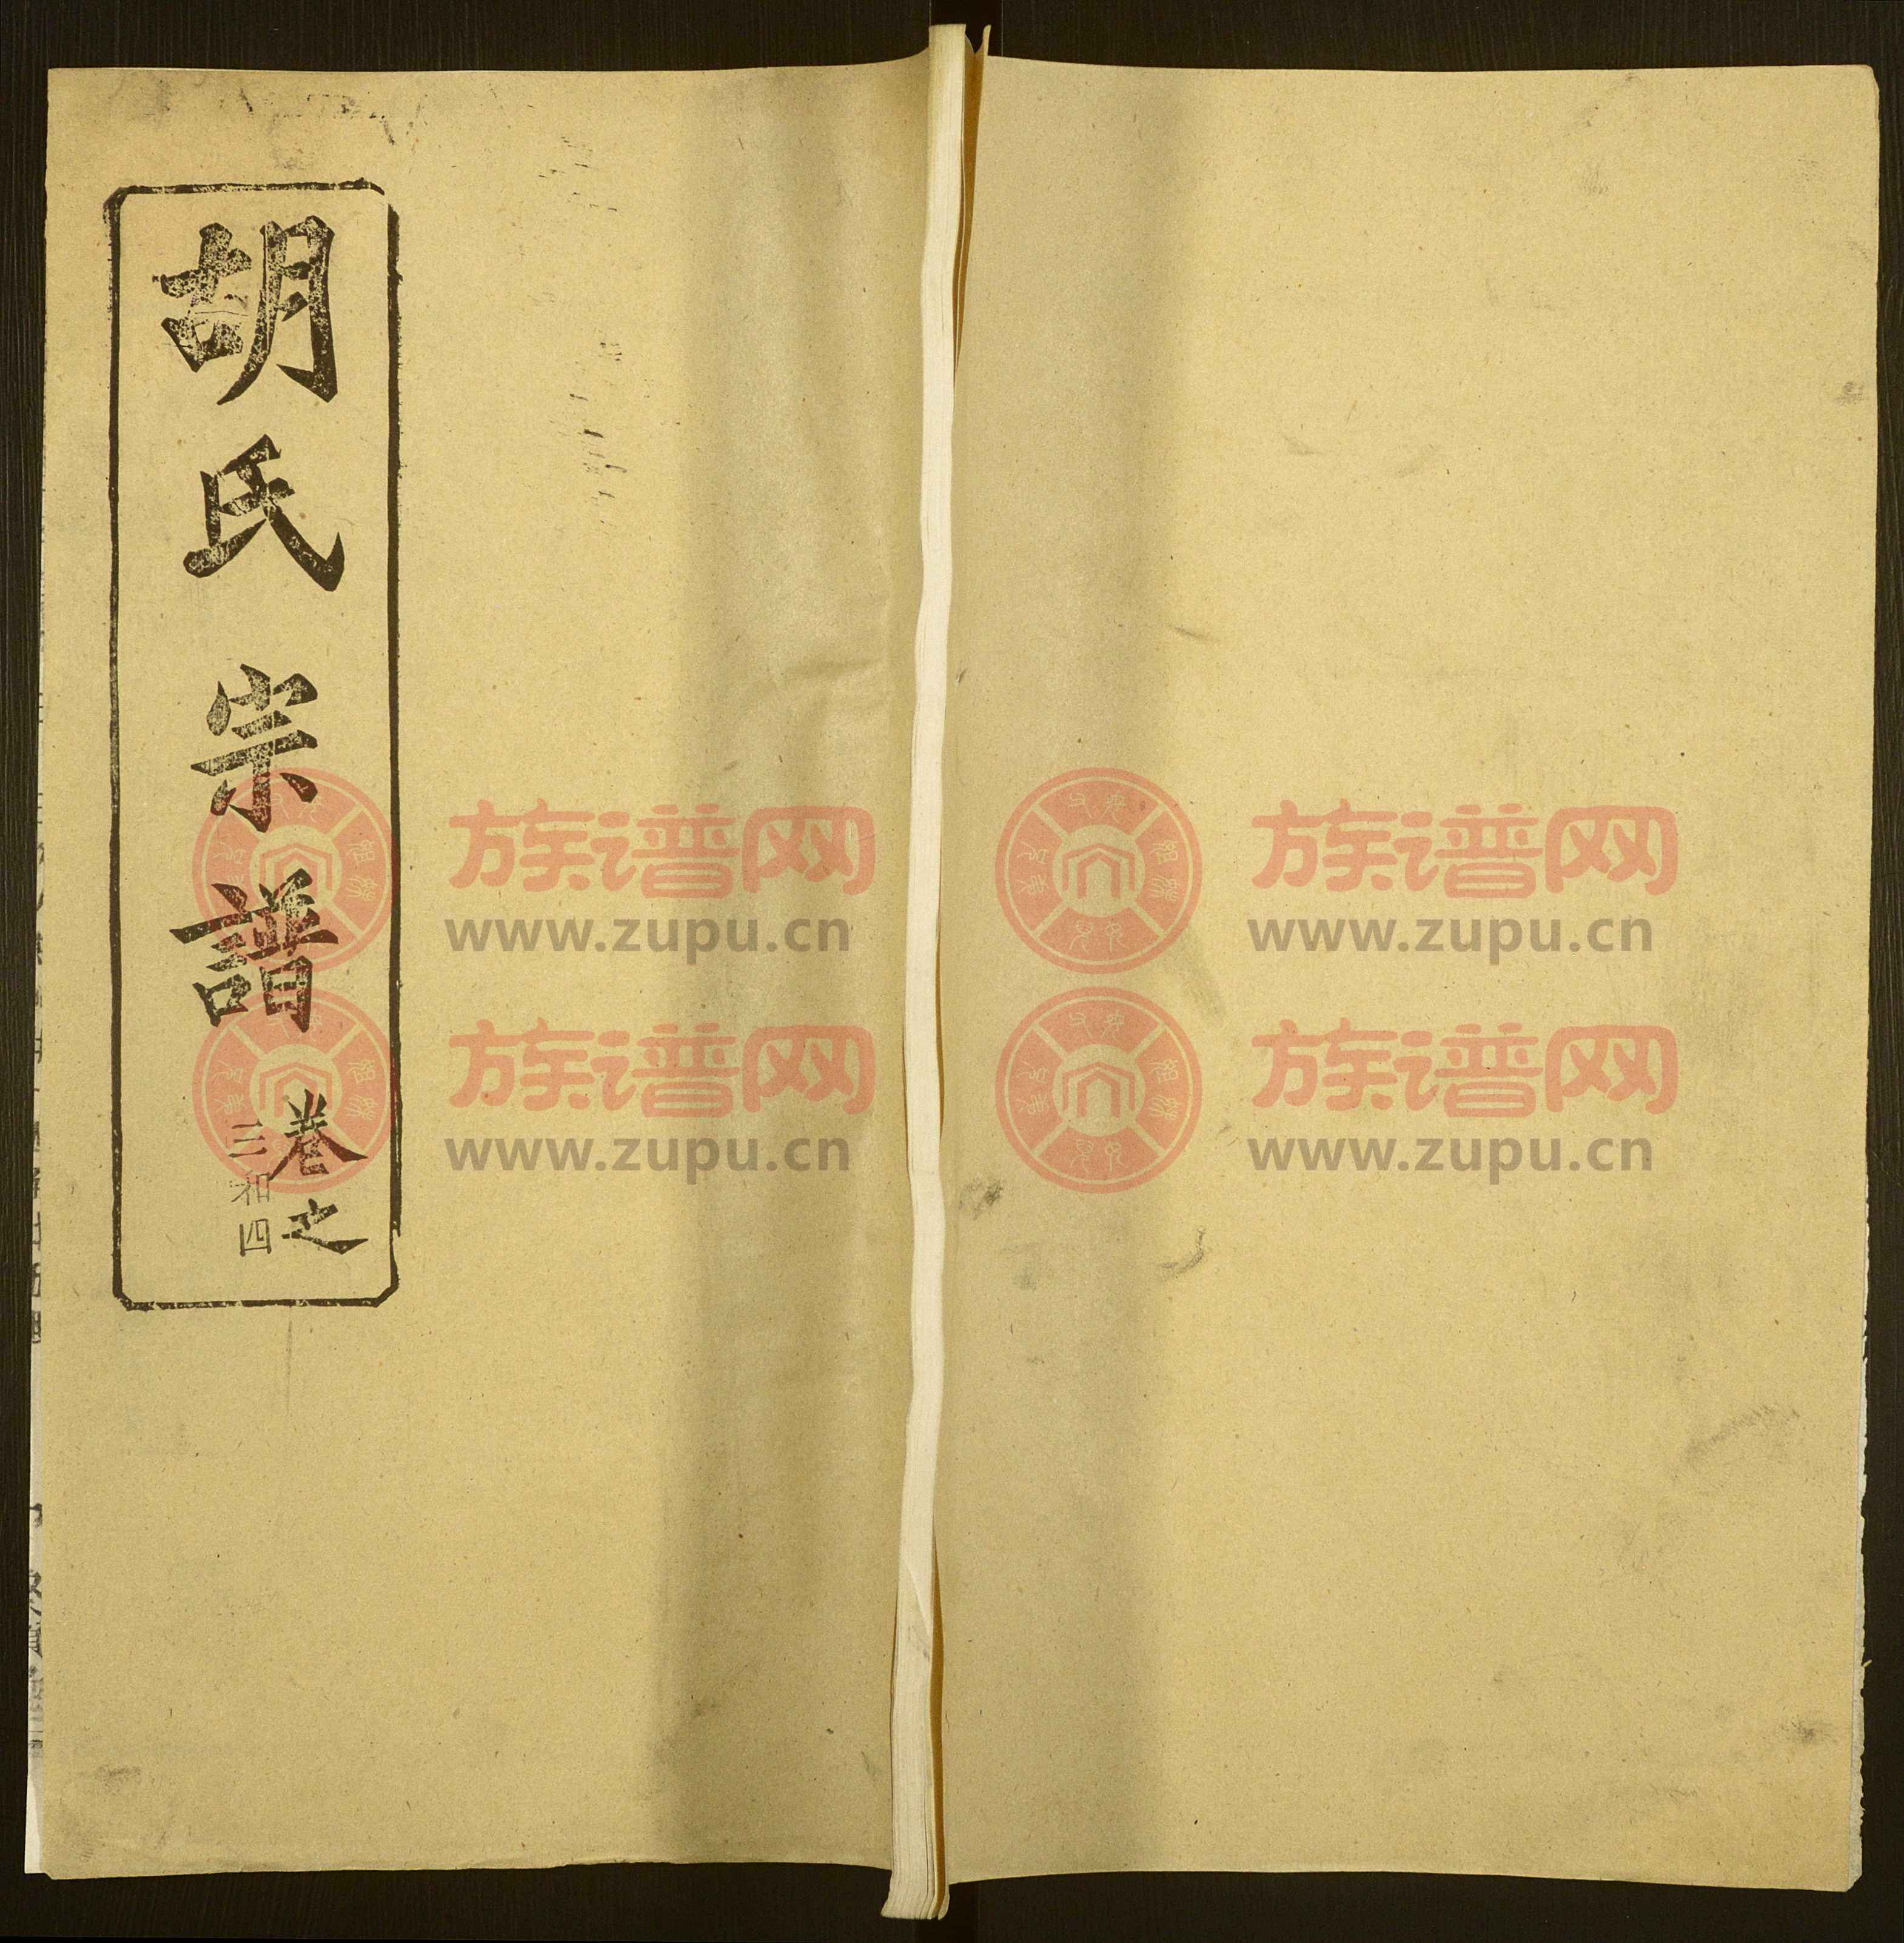 胡氏宗譜
卷之
三和四
族谱网
www.zupu.cn
族谱网
www.zupu.cn
族谱网
www.zupu.cn
族谱网
www.zupu.cn